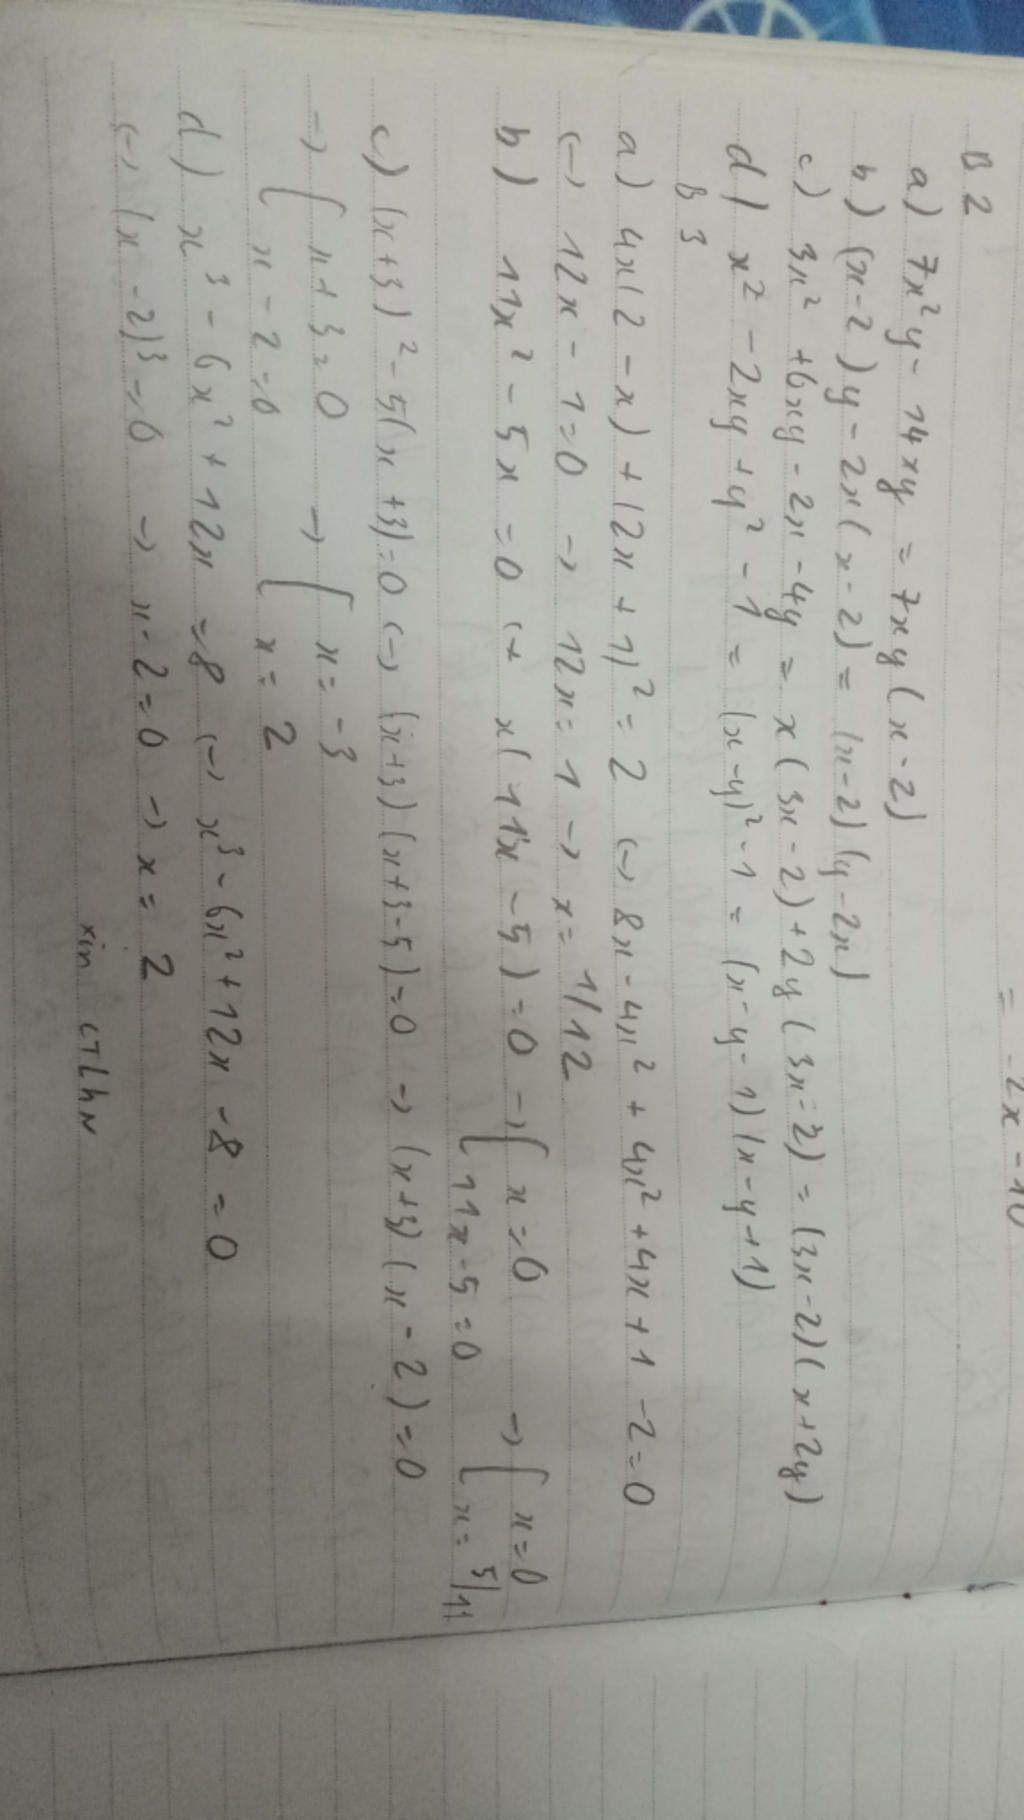 = -2x - 10
B 2
a) 7x²y - 14xy = 7xy(x-2)
b) (x-2)y - 2x(x-2) = (x-2)(y-2x)
c) 3x² + 6xy - 2x - 4y = x(3x-2) + 2y(3x-2) = (3x-2)(x+2y)
d) x² - 2xy + y² - 1 = (x-y)² - 1 = (x-y-1)(x-y+1)
B 3
a) 4x(2-x) + (2x+1)² = 2 (→ 8x - 4x² + 4x² + 4x + 1 - 2 = 0
(→ 12x - 1 = 0 → 12x = 1 → x = 1/12
b) 11x² - 5x = 0 (→ x(11x - 5) = 0 → [ x = 0 → [ x = 0
[ 11x - 5 = 0 [ x = 5/11
c) (x+3)² - 5(x+3) = 0 (→ (x+3)(x+3-5) = 0 → (x+3)(x-2) = 0
→ [ x+3 = 0 → [ x = -3
[ x - 2 = 0 [ x = 2
d) x³ - 6x² + 12x = 8 (→ x³ - 6x² + 12x - 8 = 0
(→ (x-2)³ = 0 → x - 2 = 0 → x = 2
xin CTLHN